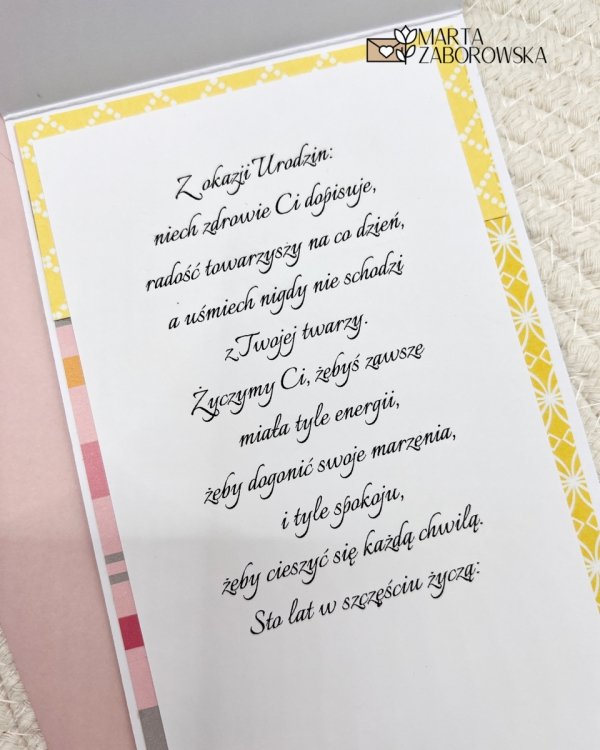 MARTA
ZABOROWSKA
Z okazji Urodzin:
niech zdrowie Ci dopisuje,
radość towarzyszy na co dzień,
a uśmiech nigdy nie schodzi
z Twojej twarzy.
Życzymy Ci, żebyś zawsze
miała tyle energii,
żeby dogonić swoje marzenia,
i tyle spokoju,
żeby cieszyć się każdą chwilą.
Sto lat w szczęściu życzą: